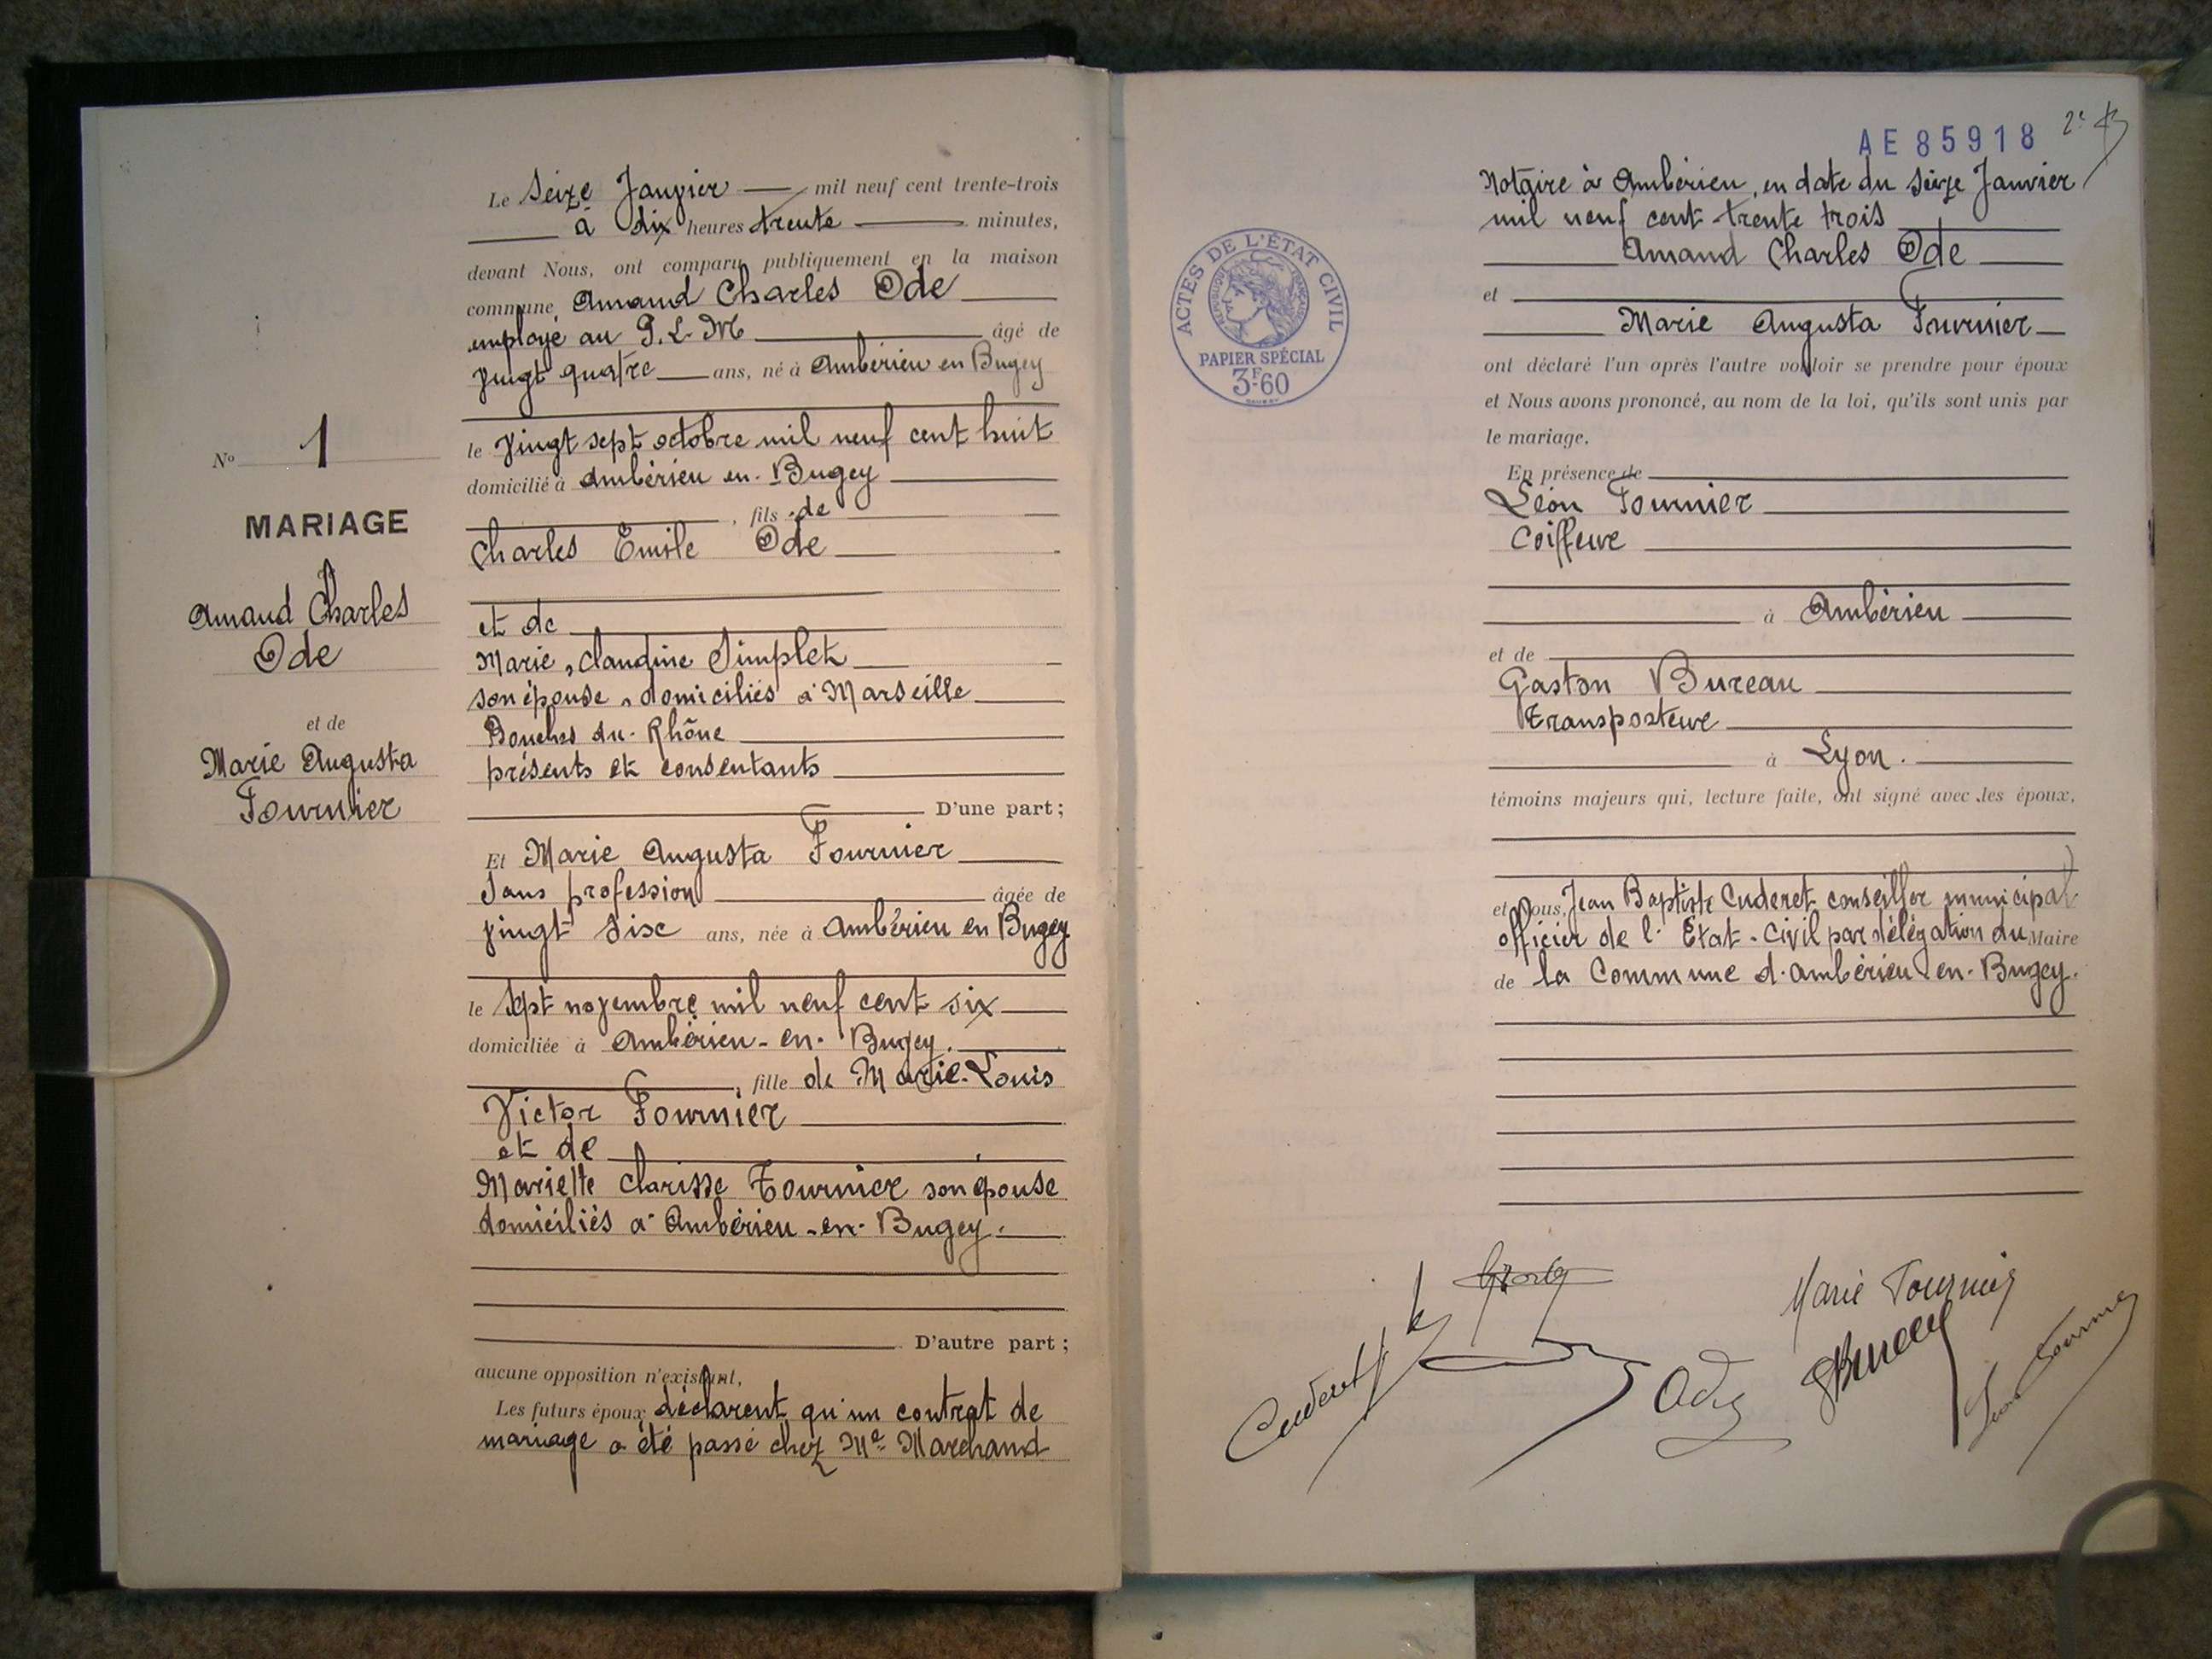 Le Seize Janvier mil neuf cent trente-trois
à dix heures trente minutes,
devant Nous, ont comparu publiquement en la maison
commune Amand Charles Ode
employé au P.L.M âgé de
vingt quatre ans, né à Ambérieu en Bugey
le vingt sept octobre mil neuf cent huit
domicilié à Ambérieu en-Bugey
, fils de
Charles Emile Ode
et de
Marie, Claudine Simplet
son épouse, domiciliés à Marseille
Bouches du-Rhône
présents et consentants
D'une part;
Et Marie Augusta Fournier
Sans profession âgée de
vingt sisc ans, née à Ambérieu en Bugey
le sept novembre mil neuf cent six
domiciliée à Ambérieu-en-Bugey.
, fille de Marie-Louis
Victor Fournier
et de
Mariette Clarisse Tournier son épouse
domiciliés à Ambérieu-en-Bugey.
D'autre part;
aucune opposition n'existant,
Les futurs époux déclarent qu'un contrat de
mariage a été passé chez Me Marchand
No 1
MARIAGE
Amand Charles
Ode
et de
Marie Augusta
Fournier
AE 85918
2e
Notaire à Ambérieu, en date du seize Janvier
mil neuf cent trente trois
Amand Charles Ode
et
Marie Augusta Fournier
ont déclaré l'un après l'autre vouloir se prendre pour époux
et Nous avons prononcé, au nom de la loi, qu'ils sont unis par
le mariage.
En présence de
Léon Fournier
Coiffeur
à Ambérieu
et de
Gaston Bureau
transporteur
à Lyon.
témoins majeurs qui, lecture faite, ont signé avec les époux,
et Nous, Jean Baptiste Cuderet conseiller municipal
officier de l'État-Civil par délégation du Maire
de la Commune d'Ambérieu-en-Bugey.
ACTES DE L'ÉTAT CIVIL
RÉPUBLIQUE FRANÇAISE
PAPIER SPÉCIAL
3F60
Cuderet
Marie Fournier
Ode
Léon Fournier